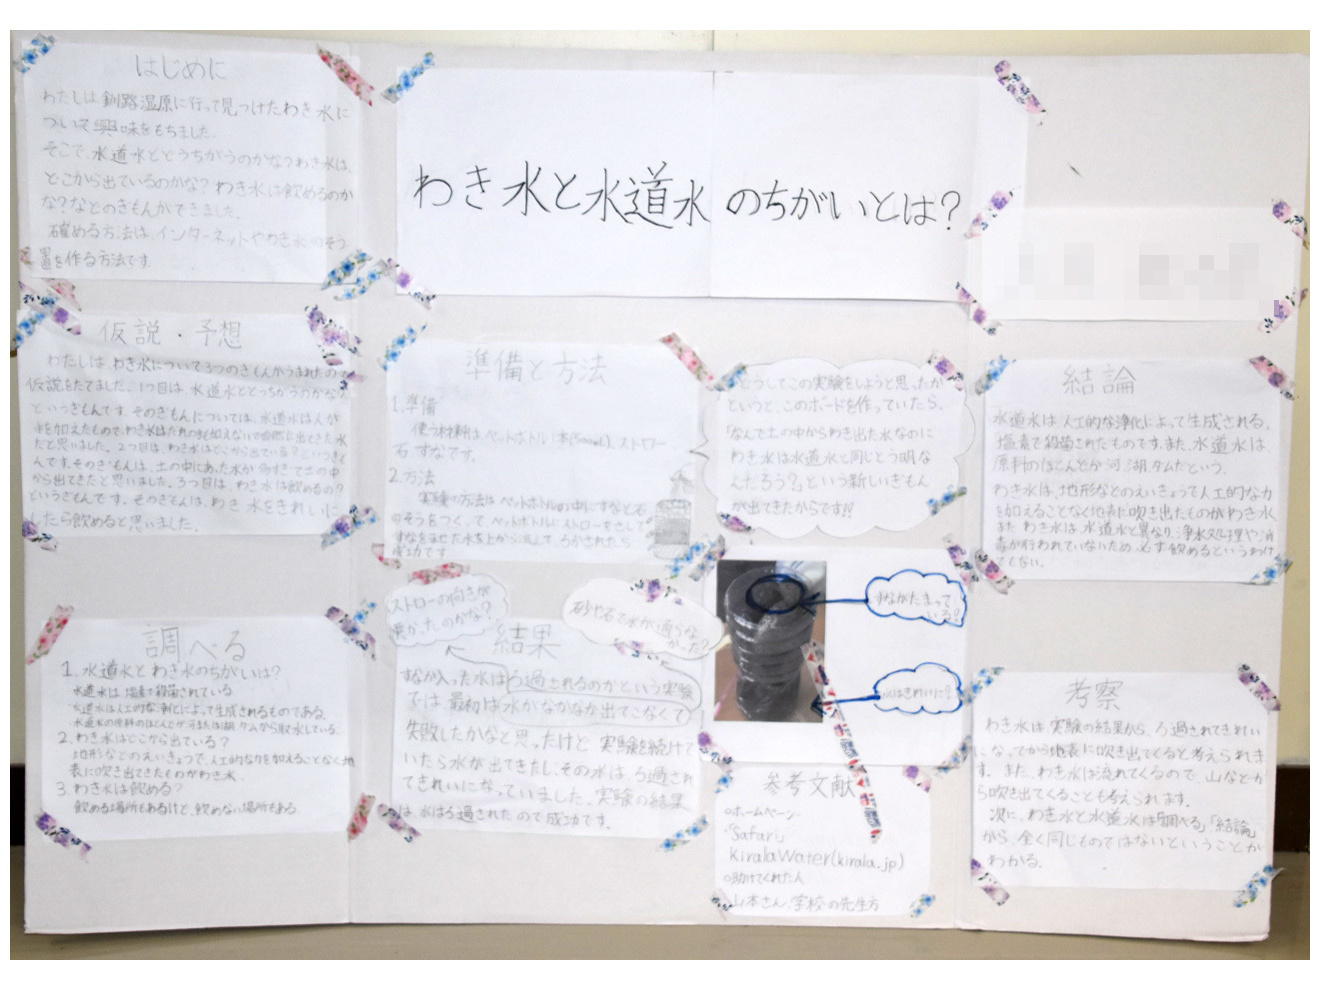 わき水と水道水のちがいとは?
はじめに
わたしは釧路湿原に行って見つけたわき水に
ついて興味をもちました。
そこで、水道水とどうちがうのかな?わき水は、
どこから出ているのかな?わき水は飲めるのか
な?などのぎもんがでてきました。
確める方法は、インターネットやわき水のそう
置を作る方法です。
仮説・予想
わたしは、わき水について3つのぎもんがうまれたので
仮説をたてました。1つ目は、水道水とどっちがうのかな?
というぎもんです。そのぎもんについては、水道水は人が
だと思いました。2つ目は、わき水はどこから出ている?というぎも
んです。そのぎもんは、土の中にあった水が
から出てきたと思いました。3つ目は、わき水は飲めるの?
というぎもんです。そのぎもんは、わき水をきれいに
したら飲めると思いました。
調べる
1. 水道水とわき水のちがいは?
水道水は塩素で殺菌されている
水道水は人工的な浄化によって生成されるものである。
水道水の原料のほとんどが河または湖、ダムから取水している。
2. わき水はどこから出ている?
地形などのえいきょうで、人工的な力を加えることなく地
表に吹き出てきたものがわき水。
3. わき水は飲める?
飲める場所もあるけど、飲めない場所もある。
準備と方法
1. 準備
使う材料は、ペットボトル1本(500mL)、ストロー
石、すなです。
2. 方法
実験の方法はペットボトルの中に、すなと石
のそうをつくって、ペットボトルにストローをさして
すなをまぜた水を上から流して、ろかされたら
成功です。
どうしてこの実験をしようと思ったか
というと、このボードを作っていたら、
「なんで土の中からわき出た水なのに
わき水は水道水と同じとう明な
んだろう?」という新しいぎもん
が出てきたからです!!
ストローの向きが
悪かったのかな?
砂や石で水が通らな
かった?
結果
すなが入った水はろ過されるのかという実験
では、最初は水がなかなか出てこなくて
失敗したかなと思ったけど、実験を続けて
いたら水が出てきたし、その水は、ろ過され
てきれいになっていました。実験の結果
は、水はろ過されたので成功です。
すながたまって
いる?
水はきれいに?
参考文献
○ホームページ
「Safari」
KiralaWater(kirala.jp)
○助けてくれた人
山本さん、学校の先生方
結論
水道水は人工的な浄化によって生成される。
塩素で殺菌されたものです。また、水道水は、
原料のほとんどが河、湖、ダムだという。
わき水は、地形などのえいきょうで人工的な力
を加えることなく地表に吹き出たものがわき水。
また、わき水は、水道水と異なり、浄水処理や消
毒が行われていないため、必ず飲めるというわけ
でもない。
考察
わき水は、実験の結果から、ろ過されてきれい
になってから地表に吹き出てくると考えられま
す。また、わき水は流れてくるので、山などか
ら吹き出てくることも考えられます。
次に、わき水と水道水は「調べる」「結論」
から、全く同じものではないということが
わかる。